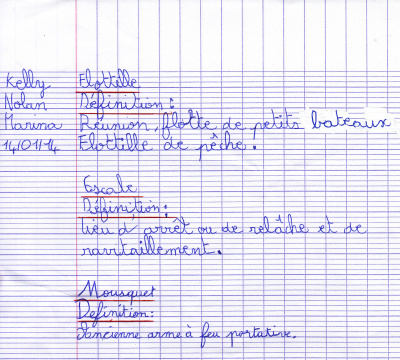 Kelly Flottille
Nolan Définition :
Marina Réunion, flotte de petits bateaux
14/01/14 Flottille de pêche.
Escale
Définition :
Lieu d'arrêt ou de relâche et de
ravitaillement.
Mousquet
Definition :
Ancienne arme à feu portative.